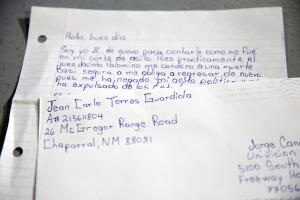 Hola, buen día.
Soy yo de nuevo para contarle como me fue
en mi corte de asilo. Pues practicamente el
juez Jacinto Palomino me condeno a una muerte
casi segura a me obliga a regresar de nuevo
pues me ha negado mi asilo politico y
ha expulsado de los
Jean Carlo Torres Guardiola
A# 215611804
26 McGregor Range Road
Chaparral, NM 88081
Jorge
Univision
5100 South
Freeway Ho
77056